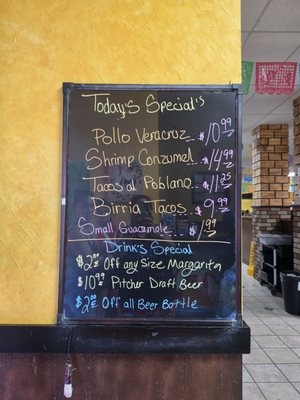 Today's Special's
Pollo Veracruz $10.99
Shrimp Conzumel $14.99
Tacos al Poblano $11.25
Birria Tacos $9.99
Small Guacamole $1.99
Drink's Special
$2.00 Off any Size Margarita
$10.99 Pitcher Draft Beer
$2.00 Off all Beer Bottle